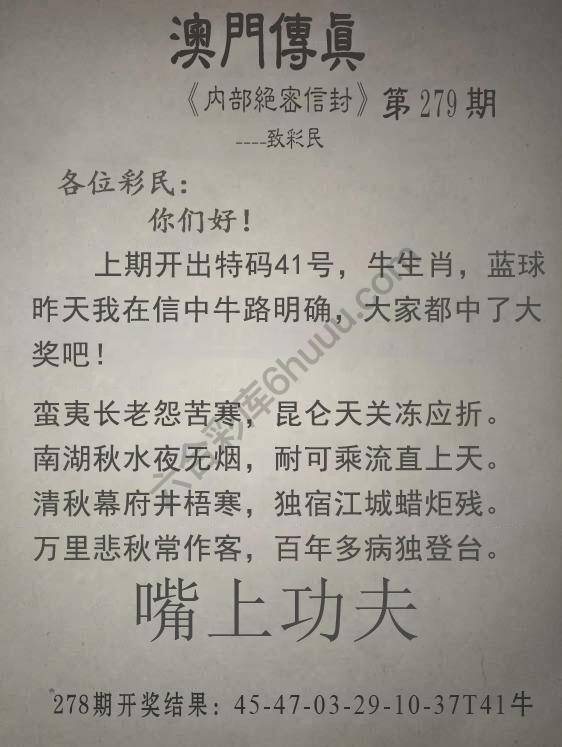 澳門傳眞
《内部絕密信封》第279期
----致彩民
各位彩民：
你们好！
上期开出特码41号，牛生肖，蓝球
昨天我在信中牛路明确，大家都中了大
奖吧！
蛮夷长老怨苦寒，昆仑天关冻应折。
南湖秋水夜无烟，耐可乘流直上天。
清秋幕府井梧寒，独宿江城蜡炬残。
万里悲秋常作客，百年多病独登台。
嘴上功夫
278期开奖结果：45-47-03-29-10-37T41牛
六合彩库6huuu.com